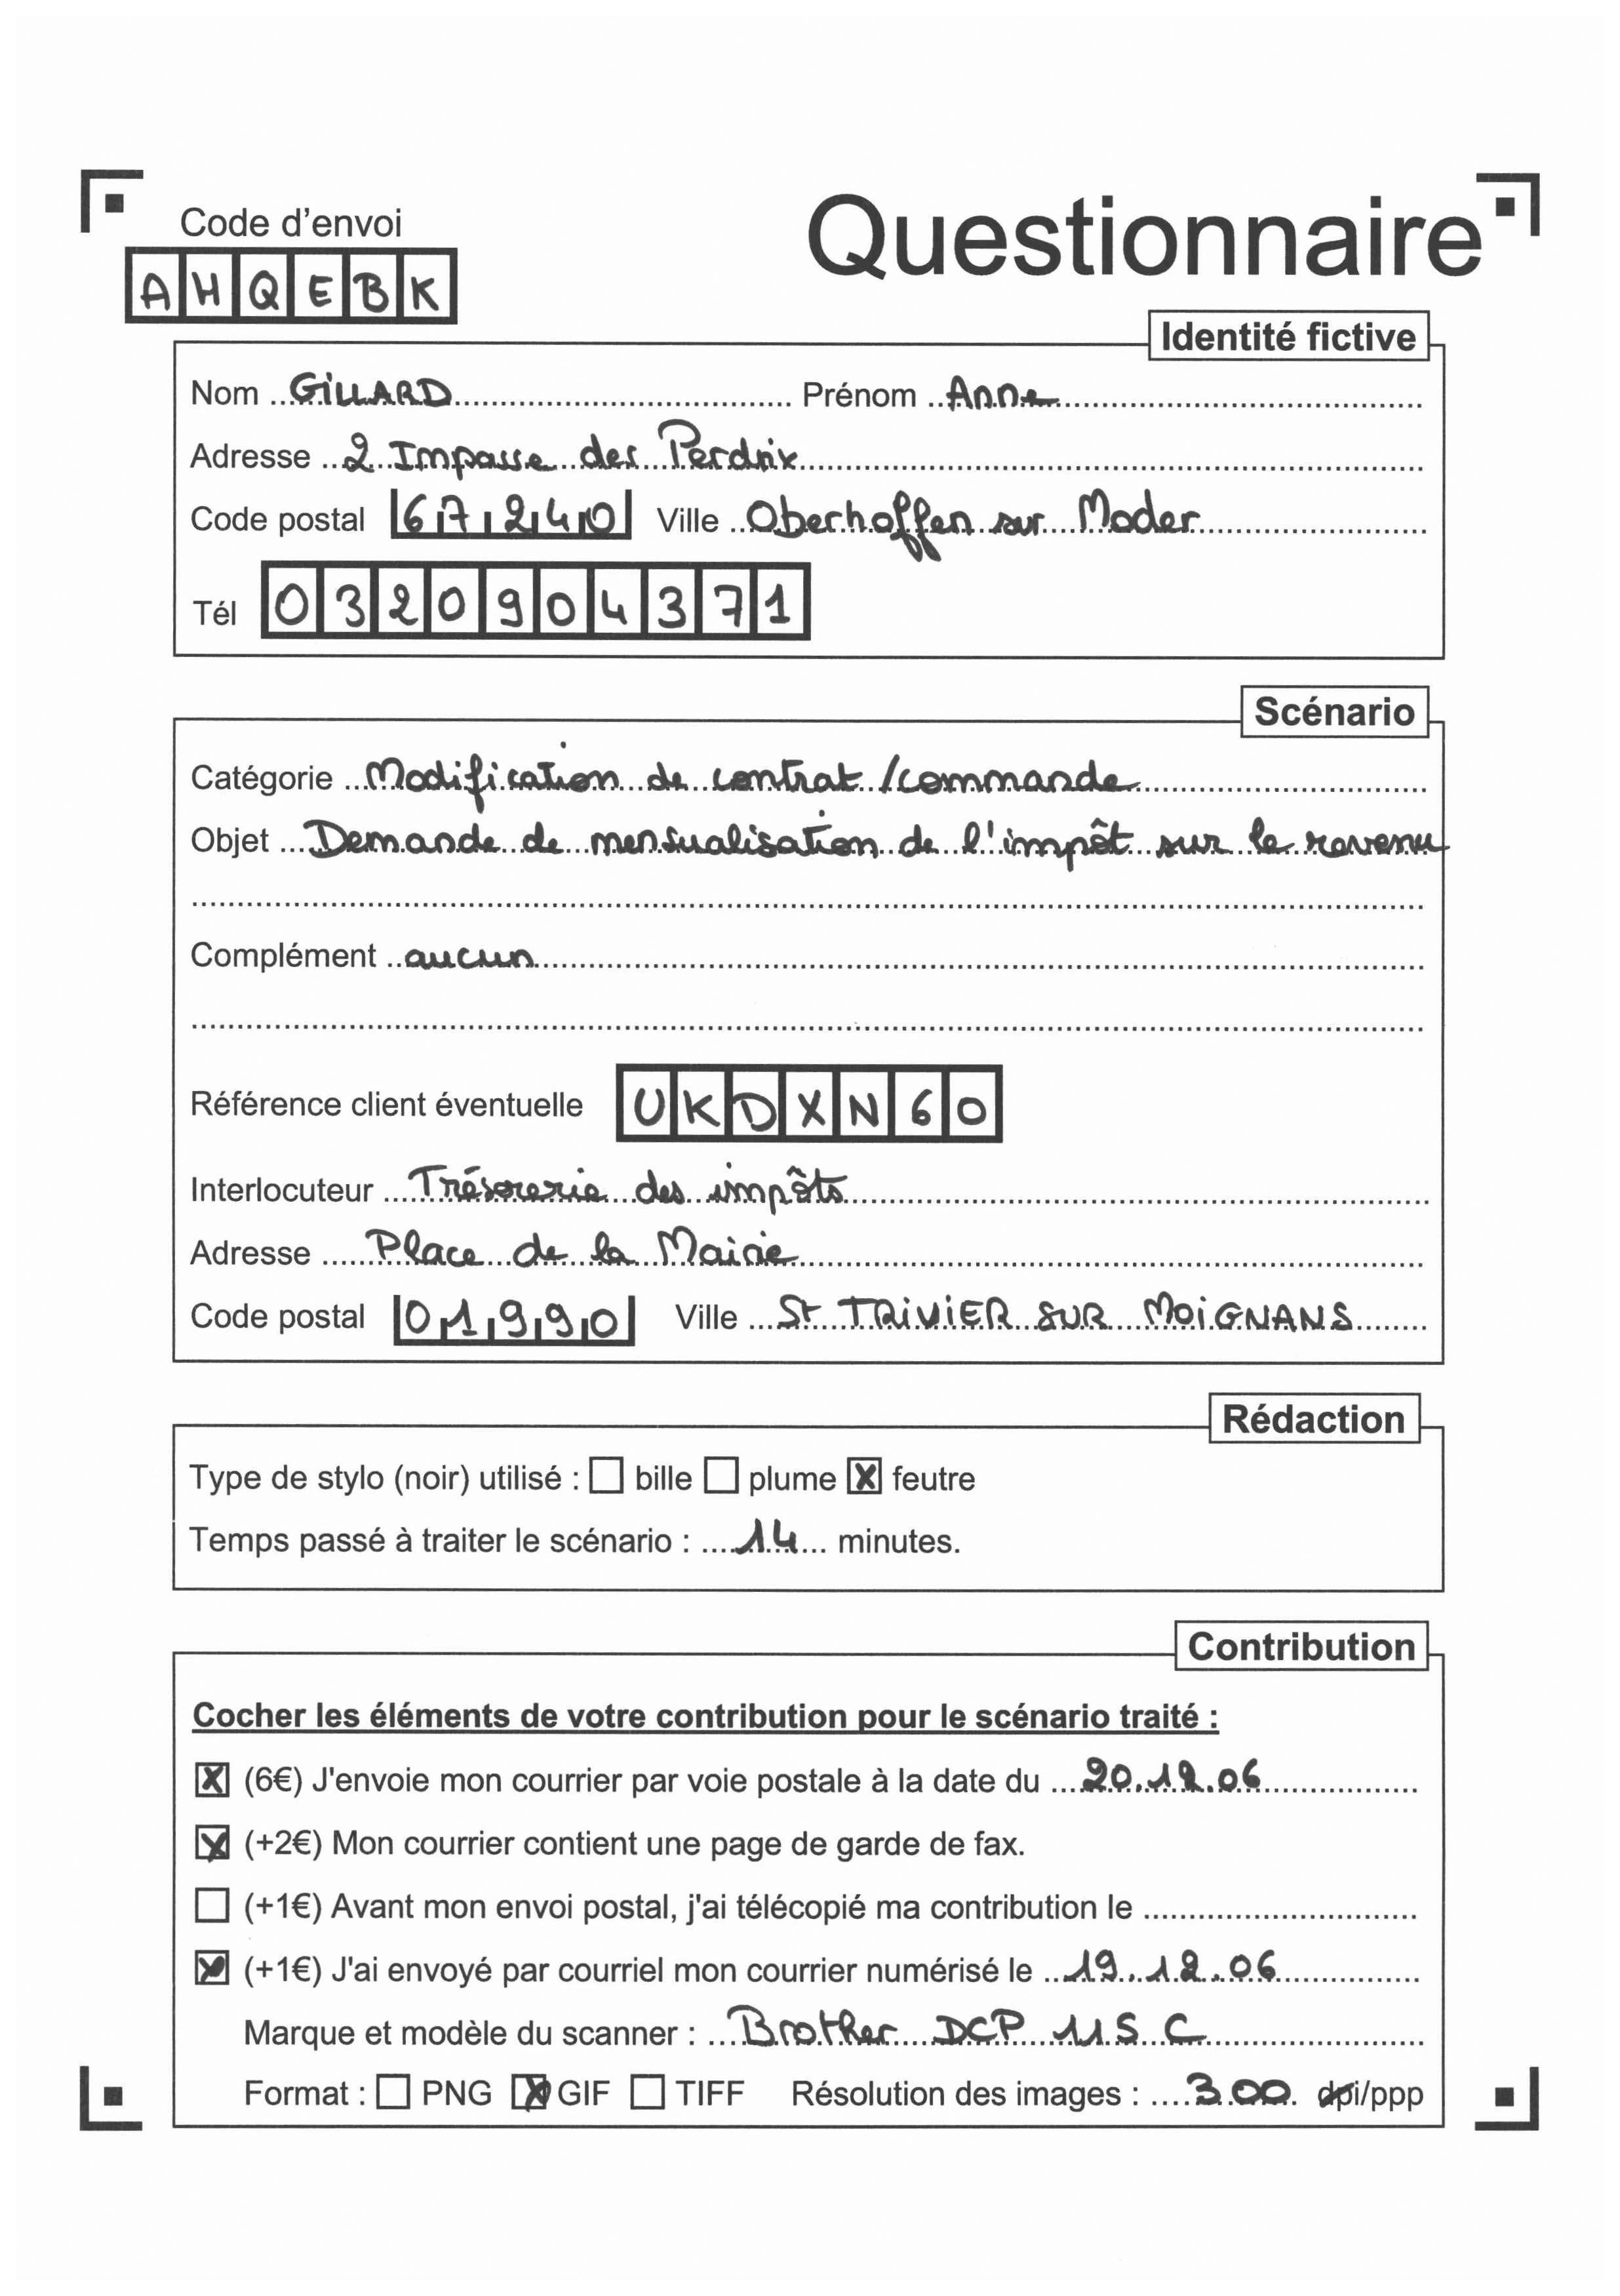 Code d'envoi
Questionnaire
AHQEBK
Identité fictive
Nom GILLARD Prénom Anne
Adresse 2 Impasse des Perdrix
Code postal 67240 Ville Oberhoffen sur Moder
Tél 0320904371
Scénario
Catégorie Modification de contrat /commande
Objet Demande de mensualisation de l'impôt sur le revenu
Complément aucun
Référence client éventuelle UKDXN60
Interlocuteur Trésorerie des impôts
Adresse Place de la Mairie
Code postal 01990 Ville St TRIVIER SUR MOIGNANS
Rédaction
Type de stylo (noir) utilisé : ☐ bille ☐ plume ☒ feutre
Temps passé à traiter le scénario : 14 minutes.
Contribution
Cocher les éléments de votre contribution pour le scénario traité :
☒ (6€) J'envoie mon courrier par voie postale à la date du 20.12.06
☒ (+2€) Mon courrier contient une page de garde de fax.
☐ (+1€) Avant mon envoi postal, j'ai télécopié ma contribution le
☒ (+1€) J'ai envoyé par courriel mon courrier numérisé le 19.12.06
Marque et modèle du scanner : Brother DCP 115 C
Format : ☐ PNG ☒ GIF ☐ TIFF Résolution des images : 300 dpi/ppp